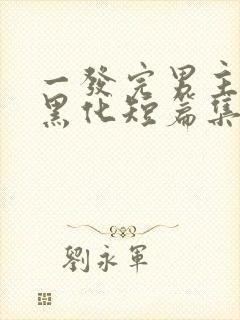 一發完男主
黑化短篇集
劉永軍